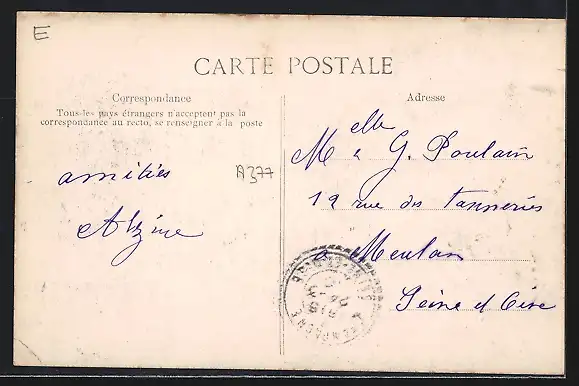 E
CARTE POSTALE
Correspondance
Tous les pays étrangers n'acceptent pas la
correspondance au recto, se renseigner à la poste
Adresse
Melle G. Poulain
12 rue des Tanneries
a Meulan
Seine et Oise
A377
amitiés